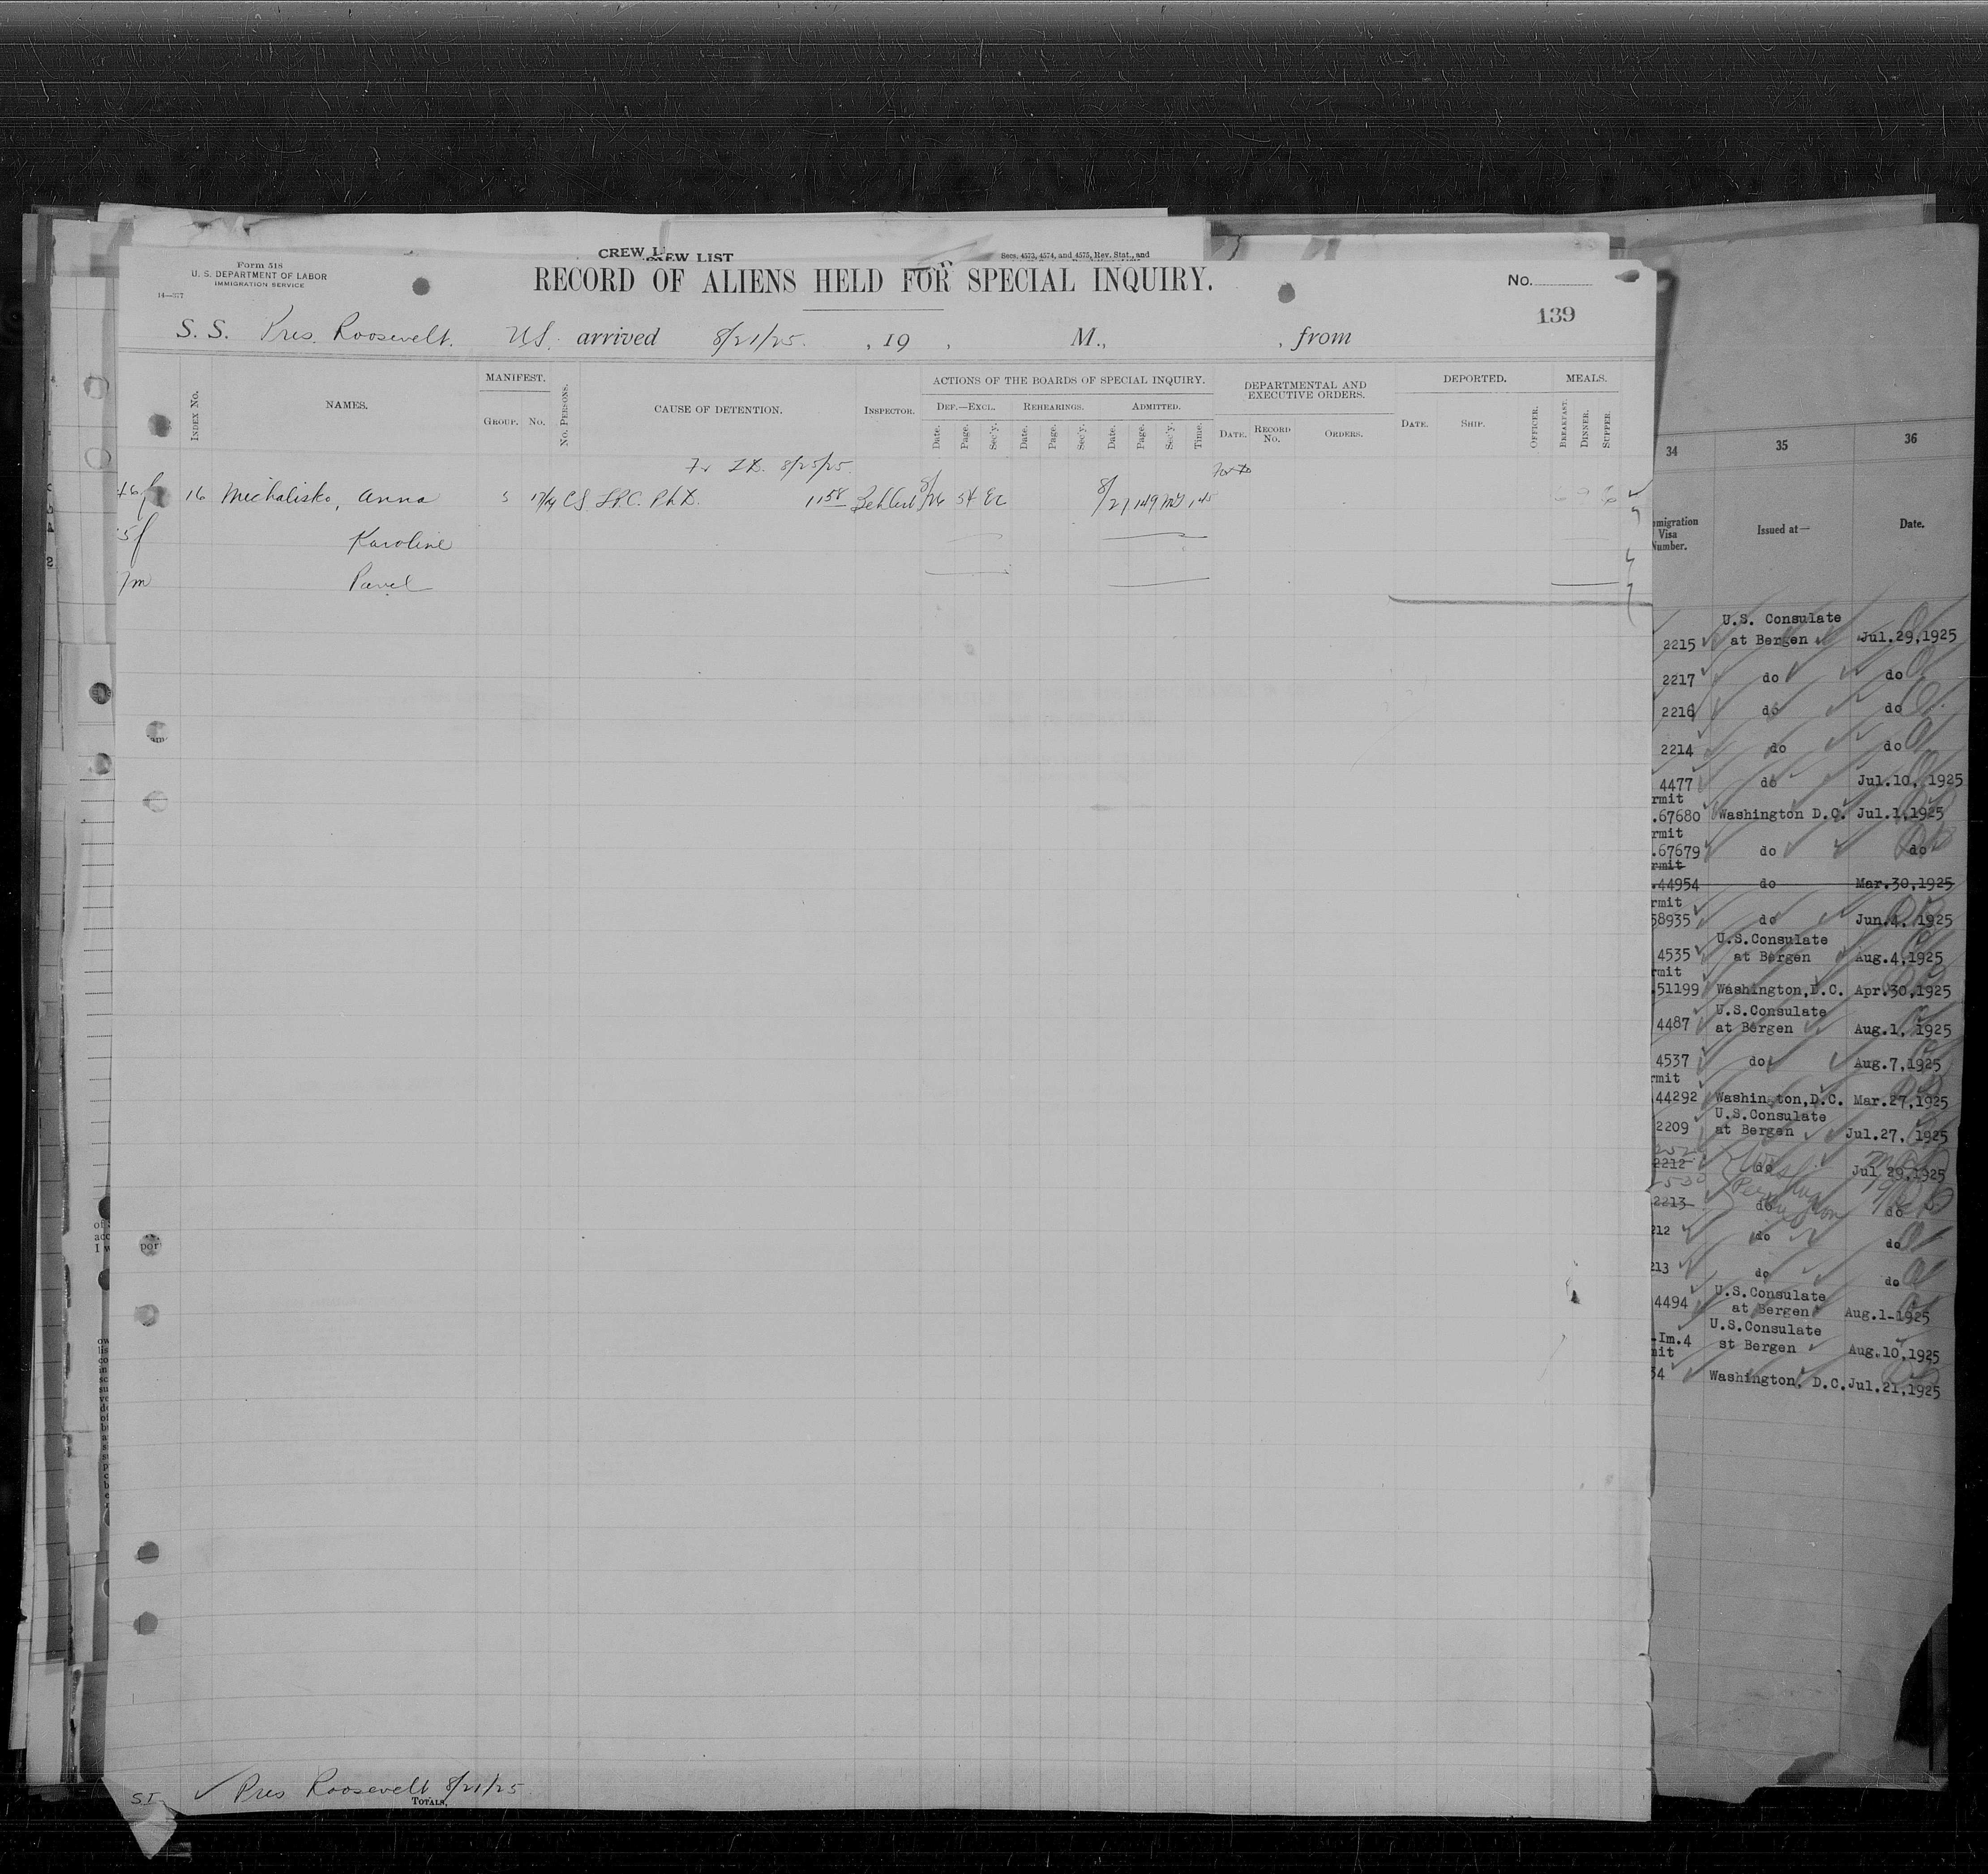 CREW LIST
Secs. 4573, 4574, and 4575, Rev. Stat., and
Form 518
U. S. DEPARTMENT OF LABOR
IMMIGRATION SERVICE
14—377
RECORD OF ALIENS HELD FOR SPECIAL INQUIRY.
No.
139
S. S. Pres. Roosevelt. US. arrived 8/21/25. , 19 , M., , from
INDEX No.
NAMES.
MANIFEST.
GROUP. No.
No. PERSONS.
CAUSE OF DETENTION.
INSPECTOR.
ACTIONS OF THE BOARDS OF SPECIAL INQUIRY.
DEF.—EXCL. REHEARINGS. ADMITTED.
Date. Page. Sec'y. Date. Page. Sec'y. Date. Page. Sec'y. Time.
DEPARTMENTAL AND EXECUTIVE ORDERS.
DATE. RECORD No. ORDERS.
DEPORTED.
DATE. SHIP. OFFICER.
MEALS.
BREAKFAST. DINNER. SUPPER.
8/25/25.
16 Michalisko, Anna 5 17/14 LPC. Ph.D. 11 58 8/26 54
Karoline
Pavel
34 35 36
migration Visa Number. Issued at— Date.
2215 U.S. Consulate at Bergen Jul.29,1925
2217 do do
2216 do do
2214 do do
4477 do Jul.10, 1925
rmit
.67680 Washington D.C. Jul.1,1925
rmit
.67679 do do
rmit
.44954 do Mar.30,1925
rmit
58935 do Jun.4, 1925
4535 U.S.Consulate at Bergen Aug.4,1925
rmit
.51199 Washington,D.C. Apr.30,1925
4487 U.S.Consulate at Bergen Aug.1, 1925
4537 do Aug.7,1925
rmit
44292 Washington,D.C. Mar.27,1925
2209 U.S.Consulate at Bergen Jul.27, 1925
2212 do Jul 29,1925
2213 do do
212 do do
213 do do
4494 U.S.Consulate at Bergen Aug.1-1925
-Im.4 U.S.Consulate st Bergen Aug.10,1925
mit
34 Washington, D.C. Jul.21,1925
por
S.I. ✓ Pres Roosevelt 8/21/25
TOTALS,